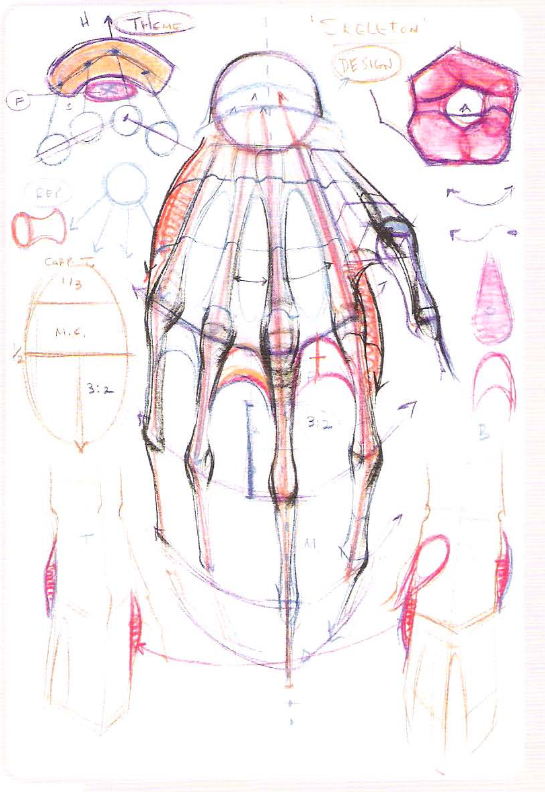 H
THEME
'SKELETON'
DESIGN
F
REP
CARP I
1/3
M.C.
1/2
3:2
3:2
B
T
M